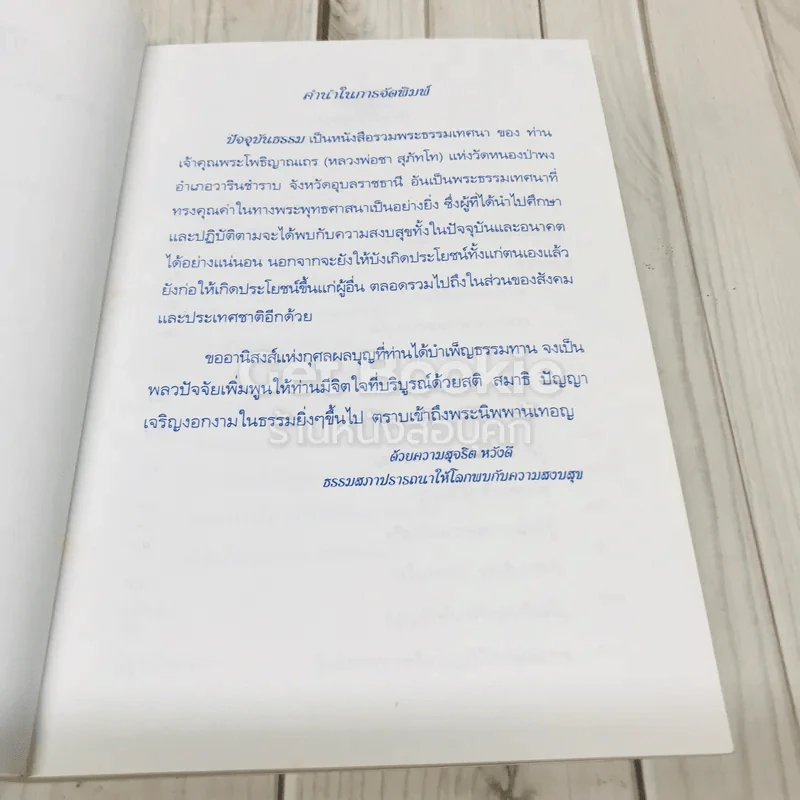 คำนำในการจัดพิมพ์
ปัจจุบันธรรม เป็นหนังสือรวมพระธรรมเทศนา ของ ท่าน
เจ้าคุณพระโพธิญาณเถร (หลวงพ่อชา สุภัทโท) แห่งวัดหนองป่าพง
อำเภอวารินชำราบ จังหวัดอุบลราชธานี อันเป็นพระธรรมเทศนาที่
ทรงคุณค่าในทางพระพุทธศาสนาเป็นอย่างยิ่ง ซึ่งผู้ที่ได้นำไปศึกษา
และปฏิบัติตามจะได้พบกับความสงบสุขทั้งในปัจจุบันและอนาคต
ได้อย่างแน่นอน นอกจากจะยังให้บังเกิดประโยชน์ทั้งแก่ตนเองแล้ว
ยังก่อให้เกิดประโยชน์ขึ้นแก่ผู้อื่น ตลอดรวมไปถึงในส่วนของสังคม
และประเทศชาติอีกด้วย
ขออานิสงส์แห่งกุศลผลบุญที่ท่านได้บำเพ็ญธรรมทาน จงเป็น
พลวปัจจัยเพิ่มพูนให้ท่านมีจิตใจที่บริบูรณ์ด้วยสติ สมาธิ ปัญญา
เจริญงอกงามในธรรมยิ่งๆขึ้นไป ตราบเข้าถึงพระนิพพานเทอญ
ด้วยความสุจริต หวังดี
ธรรมสภาปรารถนาให้โลกพบกับความสงบสุข
Get Bookie
ร้านหนังสือบุคกี้